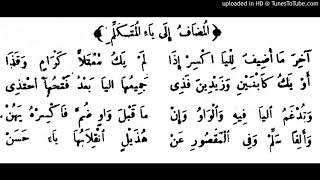 uploaded in HD @ TunesToTube.com
﴿ المُضَافُ إِلَى يَاءِ المُتَكَلِّمِ ﴾
آخِرَ مَا أُضِيفَ لِلْيَا اكْسِرْ إِذَا لَمْ يَكُ مُعْتَلًّا كَرَامٍ وَقَذَى
أَوْ يَكُ كَابْنَيْنِ وَزَيْدِينَ فَذِي جَمِيعُهَا اليَا بَعْدُ فَتْحُهَا احْتُذِي
وَتُدْغَمُ اليَا فِيهِ وَالْوَاوُ وَإِنْ مَا قَبْلَ وَاوٍ ضُمَّ فَاكْسِرْهُ يَهُنْ
وَأَلِفًا سَلِّمْ وَفِي المَقْصُورِ عَنْ هُذَيْلٍ انْقِلَابُهَا يَاءً حَسَنْ